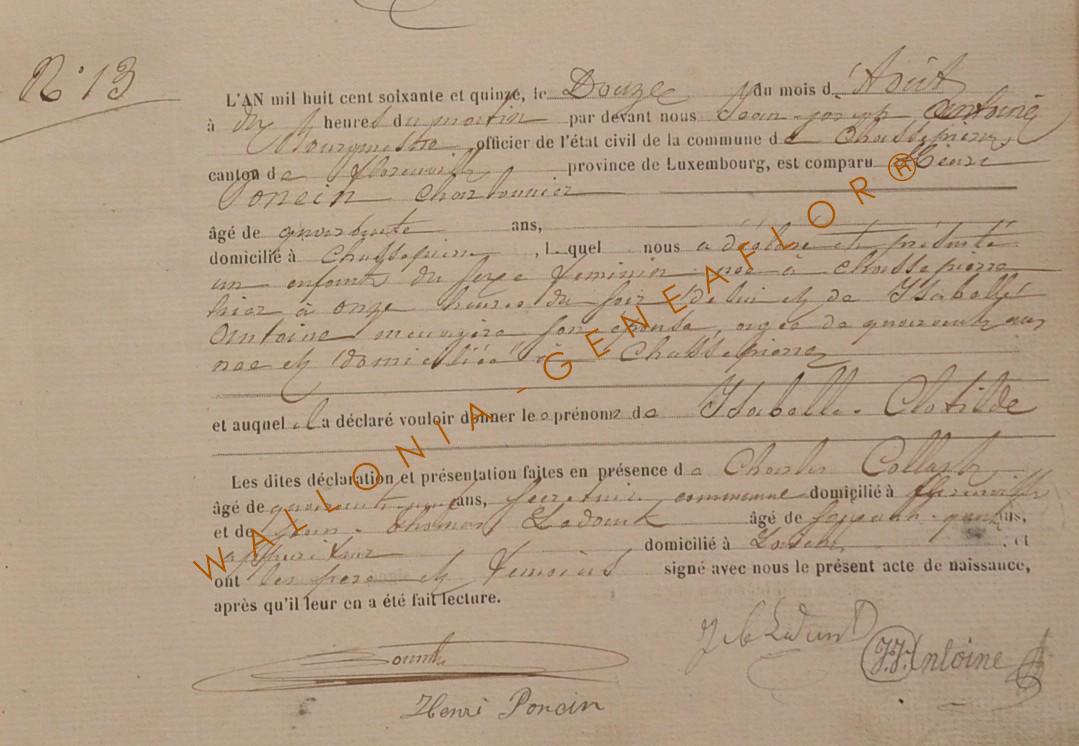 N° 13
L'AN mil huit cent soixante et quinze, le Douze du mois d'Août
à dix heures du matin par devant nous Jean-joseph Antoine
Bourgmestre officier de l'état civil de la commune de Chassepierre
canton de florenville province de Luxembourg, est comparu Henri
Poncin Charbonnier
âgé de quarante ans,
domicilié à Chassepierre, lequel nous a déclaré et présenté
un enfant du sexe feminin né à chassepierre
hier à onze heures du soir de lui et de Isabelle
Antoine menagère son épouse, agée de quarante ans
née et domiciliée à Chassepierre
et auquel il a déclaré vouloir donner le prénom de Isabelle-Clotilde
Les dites déclaration et présentation faites en présence de Charles
âgé de ans, Secretaire communal domicilié à florenville
et de Jean-thomas âgé de soixante- ans,
domicilié à , et
ont les père et temoins signé avec nous le présent acte de naissance,
après qu'il leur en a été fait lecture.
J.J. Antoine
Henri Poncin
WALLONIA-GENEAFLOR®